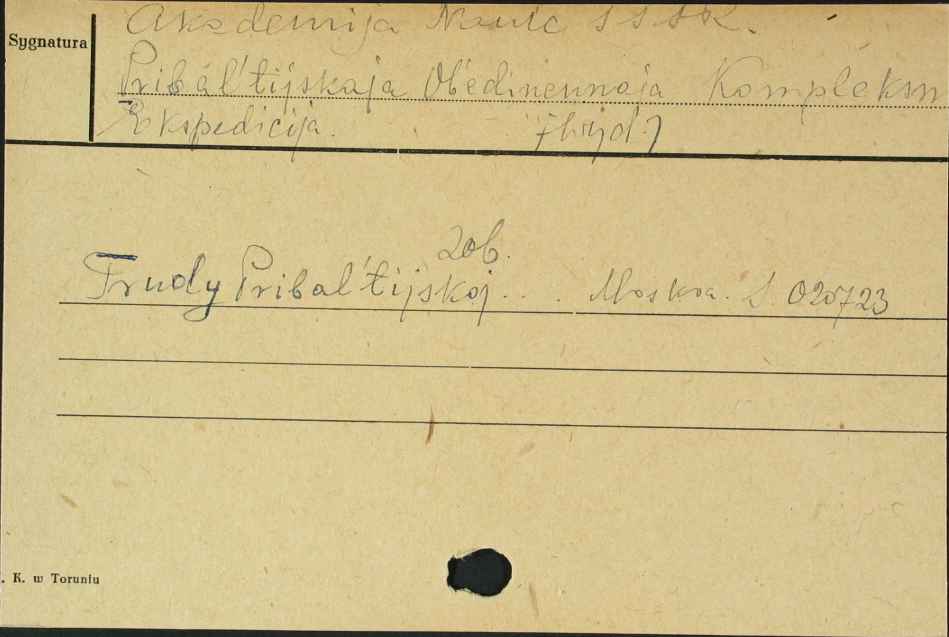 Akademija Nauk SSSR.
Sygnatura
Pribal'tijskaja Obedinennaja Kompleksn
Ekspedicija. [wyd.]
zob.
Trudy Pribal'tijskoj... Moskva. S. 020723
. K. w Toruniu